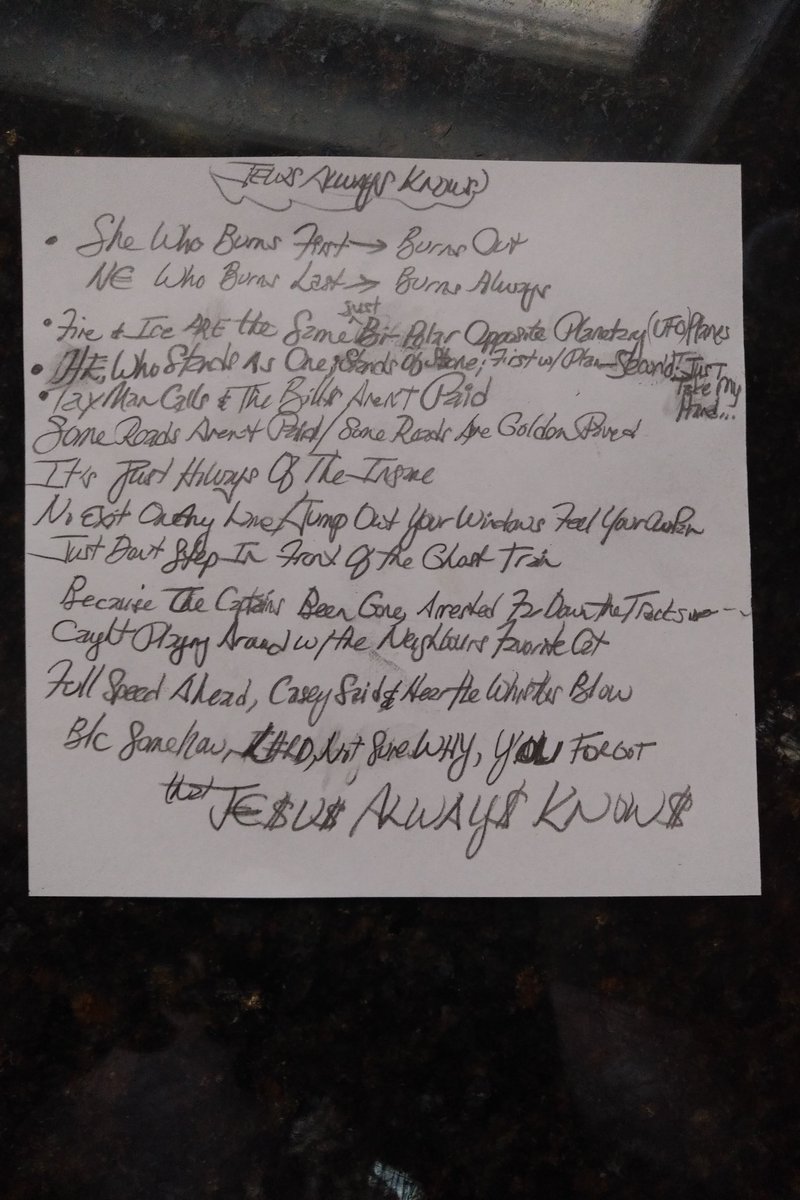 Always Knows
• She Who Burns First → Burns Out
Who Burns Last → Burns Always
just
• Fire & Ice ARE the Same Bi-Polar Opposite Planetary (UFO) Planes
• HE, Who Stands As One, Stands Stone; First w/ Plan Second: Just
Take My
Hand...
• Tax Man Calls & The Bills Aren't Paid
Some Roads Aren't Paid/Some Roads Are Golden Paved
It's Just Of The Insane
No Exit On Any Line/Jump Out Your Windows Feel Your Own
Just Don't Step In Front Of the Ghost Train
Because The Captains Been Gone, Arrested Far Down the Tracks
Caught Playing Around w/the Neighbours Favorite Cat
Full Speed Ahead, Casey Said & Hear the Whistles Blow
B/c Somehow, Not Sure WHY, YOU FORGOT
that JE$U$ ALWAY$ KNOW$